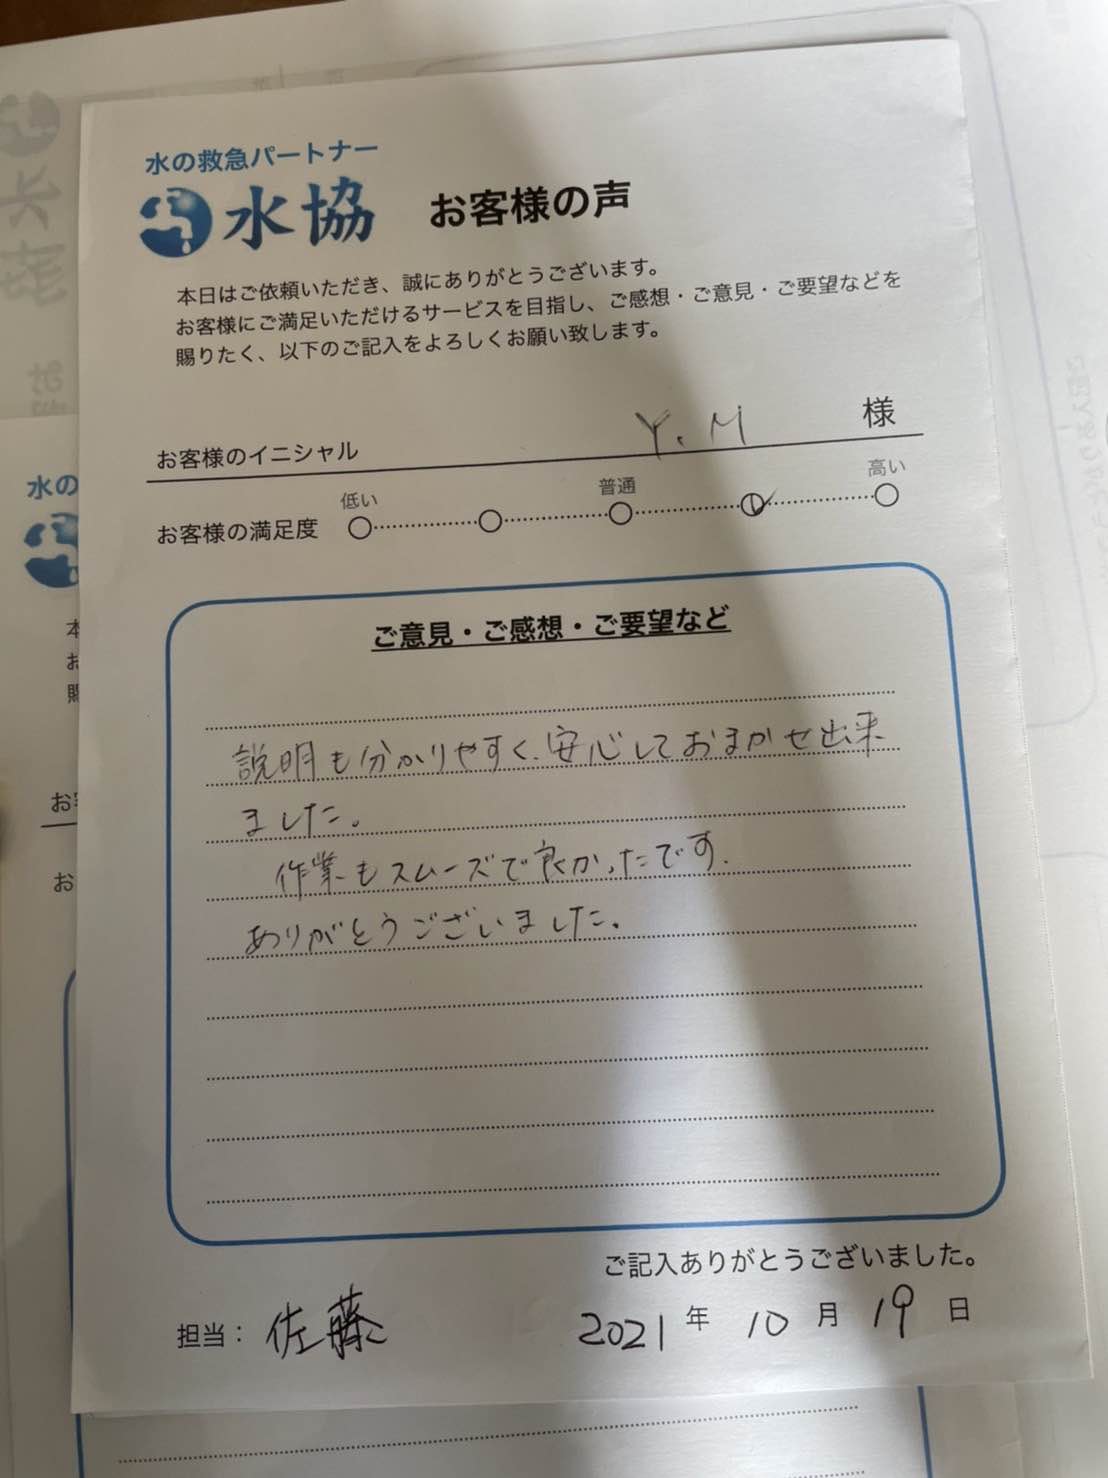 水の救急パートナー
水協 お客様の声
本日はご依頼いただき、誠にありがとうございます。
お客様にご満足いただけるサービスを目指し、ご感想・ご意見・ご要望などを
賜りたく、以下のご記入をよろしくお願い致します。
お客様のイニシャル Y.M 様
低い 普通 高い
お客様の満足度
ご意見・ご感想・ご要望など
説明も分かりやすく、安心しておまかせ出来
ました。
作業もスムーズで良かったです.
ありがとうございました。
ご記入ありがとうございました。
担当: 佐藤 2021 年 10 月 19 日
水の
本
お
賜
お客
お